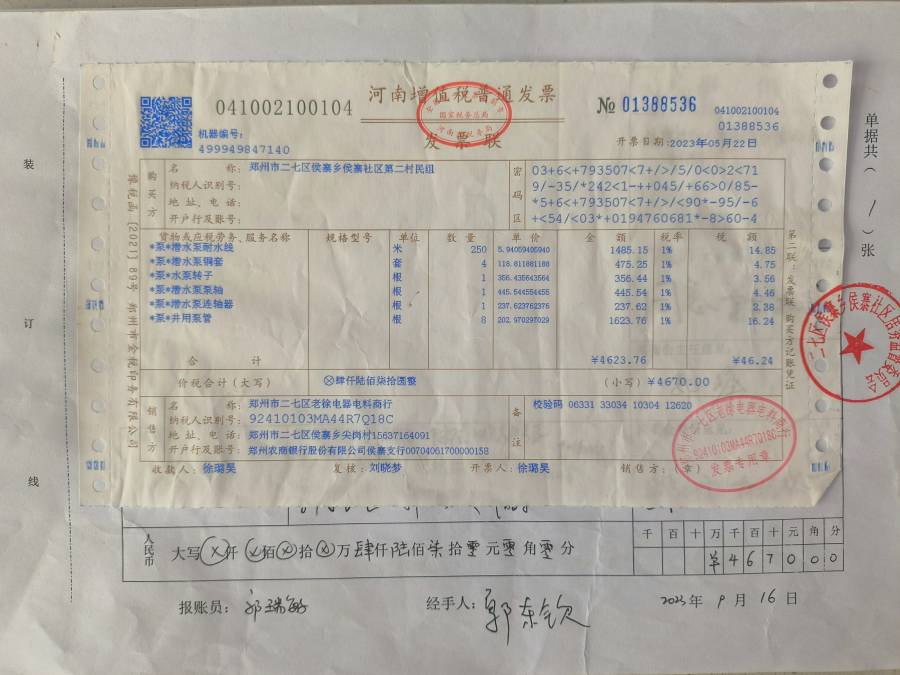 041002100104
河南增值税普通发票
№ 01388536
041002100104
01388536
机器编号：
499949847140
发票联
国家税务总局
开票日期:2023年05月22日
购买方
名 称：郑州市二七区侯寨乡侯寨社区第二村民组
纳税人识别号：
地 址、电 话：
开户行及账号：
密码区
03+6<+793507<7+/>/5/0<0>2<71
9/-35/*242<1-++045/+66>0/85-
*5+6<+793507<7+/>/<90*-95/-6
+<54/<03*+0194760681*-8>60-4
货物或应税劳务、服务名称 规格型号 单位 数量 单价 金额 税率 税额
*泵*潜水泵耐水线 米 250 5.94059405940 1485.15 1% 14.85
*泵*潜水泵铜套 套 4 118.811881188 475.25 1% 4.75
*泵*水泵转子 根 1 356.435643564 356.44 1% 3.56
*泵*潜水泵泵轴 根 1 445.544554455 445.54 1% 4.46
*泵*潜水泵连轴器 根 1 237.623762376 237.62 1% 2.38
*泵*井用泵管 根 8 202.970297029 1623.76 1% 16.24
合 计 ¥4623.76 ¥46.24
价税合计（大写） ⊗肆仟陆佰柒拾圆整 （小写）¥4670.00
销售方
名 称：郑州市二七区老徐电器电料商行
纳税人识别号：92410103MA44R7Q18C
地 址、电 话：郑州市二七区侯寨乡尖岗村15637164091
开户行及账号：郑州农商银行股份有限公司侯寨支行00704061700000158
备注
校验码 06331 33034 10304 12620
收款人：徐璐昊 复核：刘晓梦 开票人：徐璐昊 销售方：（章）
92410103MA44R7Q18C
发票专用章
第二联：发票联 购买方记账凭证
豫税函〔2021〕89号 郑州市金税印务有限公司
单据共（ 1 ）张
装
订
线
人民币
大写ⓧ仟ⓧ佰ⓧ拾ⓧ万肆仟陆佰柒拾零元零角零分
千 百 十 万 千 百 十 元 角 分
4 6 7 0 0 0
报账员：郭瑞敏
经手人：郭东钦
2023年 9月 16日